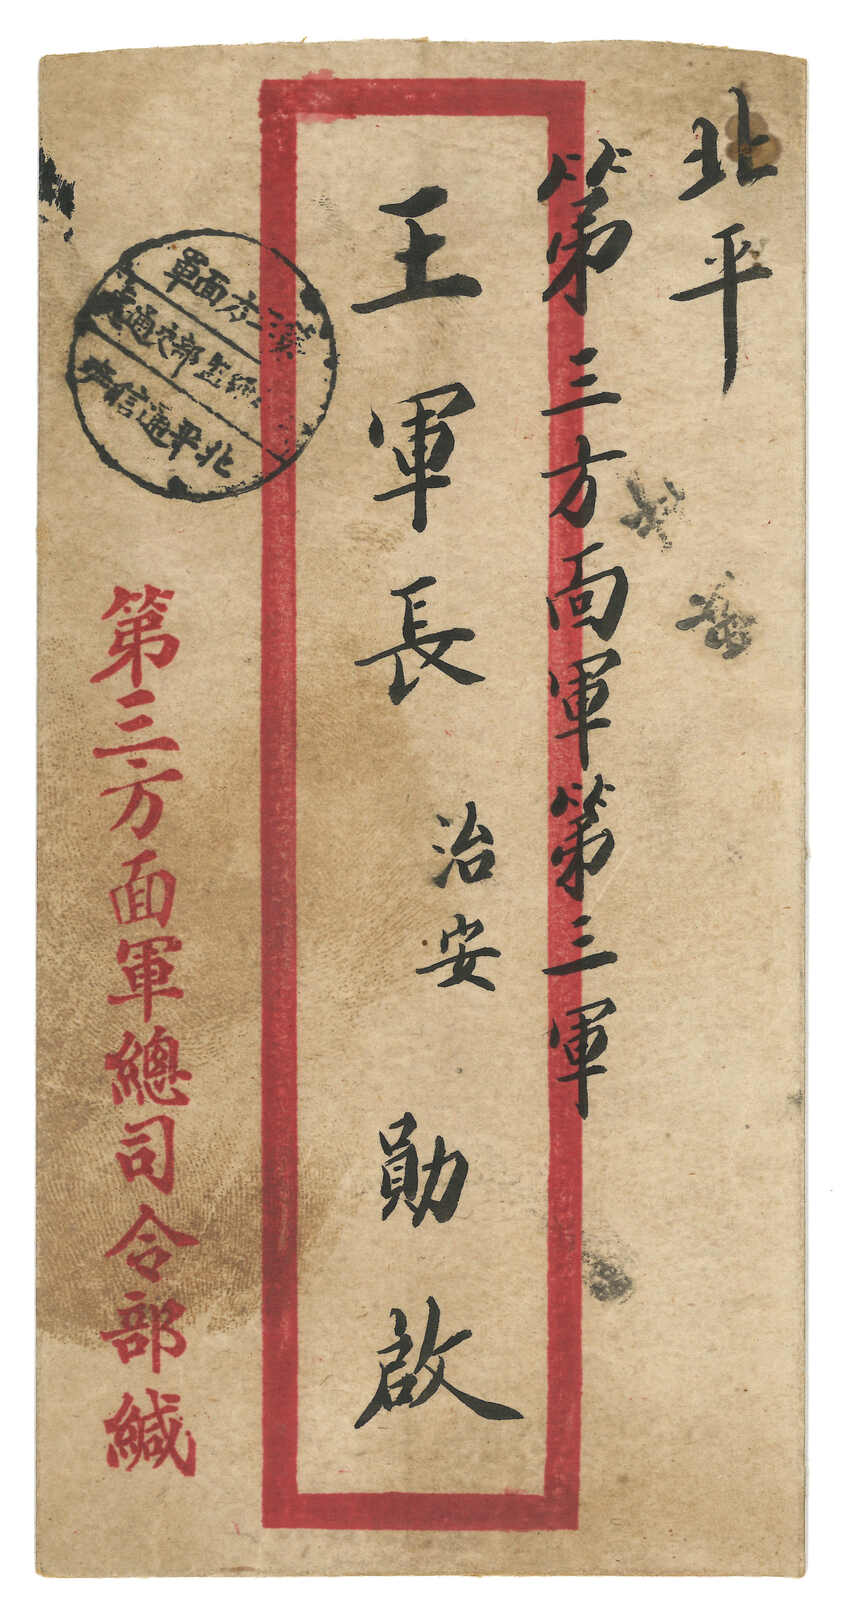 北平
第三方面軍第三軍
王軍長 治安 勛啟
第三方面軍
總部交通處
北平通信所
第三方面軍總司令部緘